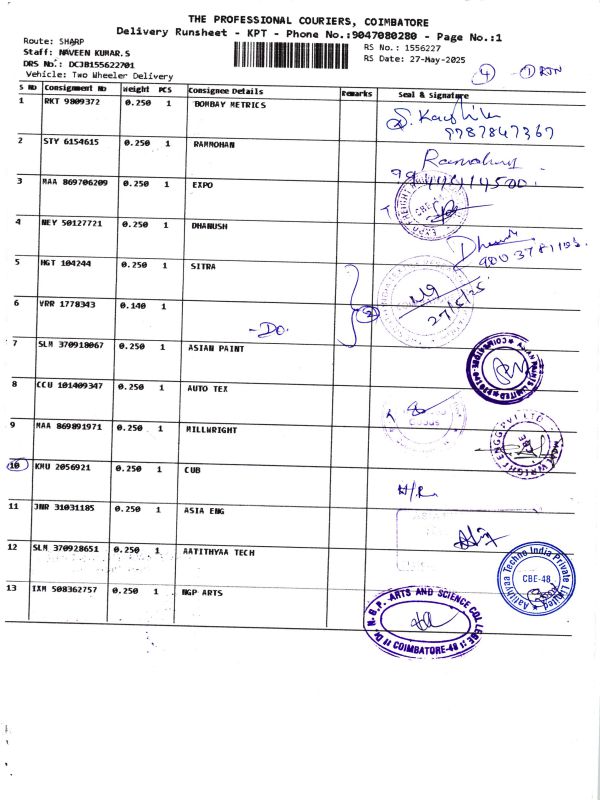 THE PROFESSIONAL COURIERS, COIMBATORE
Delivery Runsheet - KPT - Phone No.:9047080280 - Page No.:1
Route: SHARP
Staff: NAVEEN KUMAR.S
DRS No.: DCJB155622701
Vehicle: Two Wheeler Delivery
RS No.: 1556227
RS Date: 27-May-2025
4 - 1 RTN
S No Consignment No Weight PCS Consignee Details Remarks Seal & signature
1 RKT 9809372 0.250 1 BOMBAY METRICS
9787847367
2 STY 6154615 0.250 1 RAMMOHAN
3 MAA 869706209 0.250 1 EXPO
4 NEY 50127721 0.250 1 DHANUSH
5 HGT 104244 0.250 1 SITRA
27/5/25
6 VRR 1778343 0.140 1 -Do. 2
7 SLM 370918067 0.250 1 ASIAN PAINT
8 CCU 101409347 0.250 1 AUTO TEX
9 MAA 869891971 0.250 1 MILLWRIGHT
10 KMU 2056921 0.250 1 CUB
11 JNR 31031185 0.250 1 ASIA ENG
12 SLM 370928651 0.250 1 AATITHYAA TECH
Aatithyaa Techno India Private Limited
CBE-48
13 IXM 508362757 0.250 1 NGP ARTS
Dr. N.G.P. ARTS AND SCIENCE COLLEGE
COIMBATORE-48